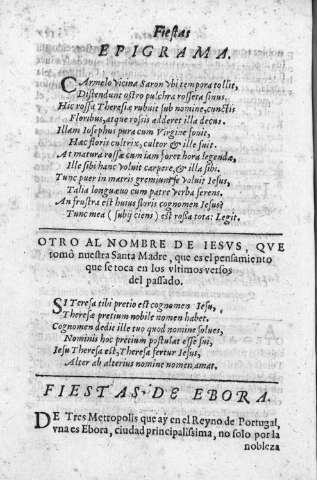 Fiestas
EPIGRAMA.
CArmelo vicina Saron vbi tempora tollit,
Distendunt ostro pulchra rosseta sinus.
Hic rossa Theresiæ rubuit sub nomine, cunctis
Floribus, atque rossis adderet illa decus.
Illam Iosephus pura cum Virgine fouit,
Hæc floris cultrix, cultor & ille fuit.
At matura rossæ cum iam foret hora legendæ,
Ille sibi hanc voluit carpere, & illa sibi.
Tunc puer in matris gremium se voluit Iesus,
Talia longæuo cum patre verba serens.
An frustra est huius floris cognomen Iesus?
Tunc mea (subijciens) est rossa tota: Legit.
OTRO AL NOMBRE DE IESVS, QVE
tomò nuestra Santa Madre, que es el pensamiento
que se toca en los vltimos versos
del passado.
SI Teresa tibi pretio est cognomen Iesu,
Theresæ pretium nobile nomen habet.
Cognomen dedit ille tuo quod nomine soluet,
Nominis hoc pretium postulat esse sui,
Iesu Theresa est, Theresa fertur Iesus,
Alter ab alterius nomine nomen amat.
FIESTAS DE EBORA.
DE Tres Metropolis que ay en el Reyno de Portugal,
vna es Ebora, ciudad principalissima, no solo por la
nobleza